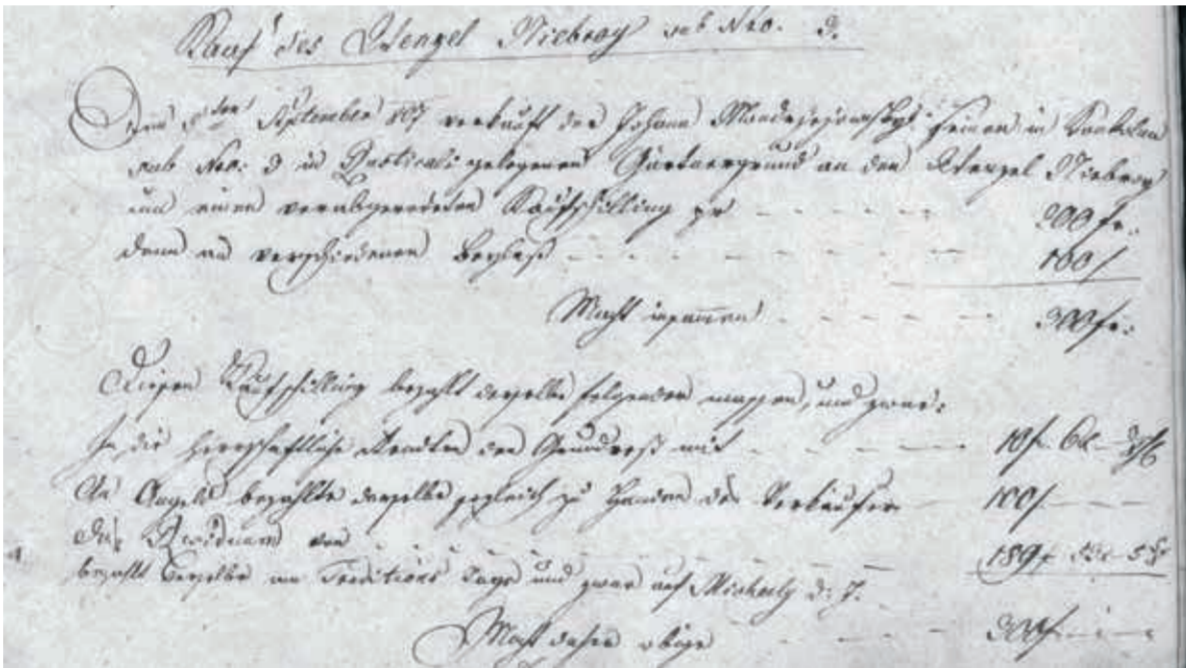 Kauf des Wenzel Niebroy sub Nro. 3.
Dem 5ten September 807 verkauft der Johann seinen in
sub Nro: 3 in Rusticali gelegenen Gärtnergrund an den Wenzel Niebroy
um einen verabgeredeten Kaufschilling pr - - - - - - 200 fr.
dann an verschiedenen Beylaß - - - - - - 100 f
Macht zusammen - - - - - 300 fr.
Diesen Kaufschilling bezahlt derselbe folgender massen, und zwar:
In die herrschaftliche Renten den Grundrest mit - - - - 10 f
An Angeld bezahlte derselbe sogleich zu Handen des Verkäufer 100 f
das Residuum von - - - - - - 189 f
bezahlt derselbe am Traditions Tage und zwar auf Michaely d: J.
Macht daher obige - - - - 300 f